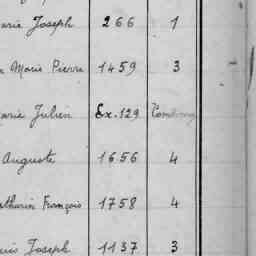 arie Joseph 266 1
Marie Pierre 1459 3
arie Julien Ex. 129
Auguste 1656 4
athurin François 1758 4
uis Joseph 1137 3